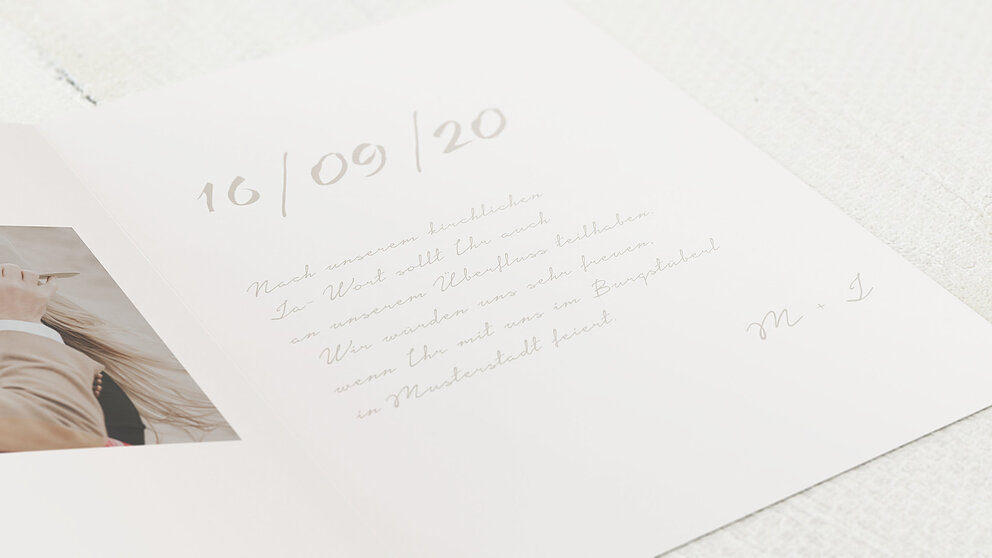 16 / 09 / 20
Nach unserem kirchlichen
Ja-Wort sollt Ihr auch
an unserem Überfluss teilhaben.
Wir würden uns sehr freuen,
wenn Ihr mit uns im Burgstüberl
in Musterstadt feiert.
M + J